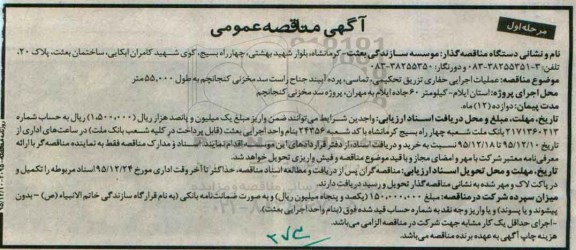 مرحله اول
آگهی مناقصه عمومی
نام و نشانی دستگاه مناقصه گذار: موسسه سازندگی بعثت- کرمانشاه، بلوار شهید بهشتی، چهارراه بسیج، کوی شهید کامران ابکایی، ساختمان بعثت، پلاک ۲۰،
تلفن: ۳-۳۸۲۵۵۳۵۱-۰۸۳ و دورنگار: ۳۸۲۵۵۳۵۰-۰۸۳
موضوع مناقصه: عملیات اجرایی حفاری تزریق تحکیمی، تماسی، پرده آببند جناح راست سد مخزنی کنجانچم به طول ۵۵,۰۰۰ متر
محل اجرای پروژه: استان ایلام- کیلومتر ۶۰ جاده ایلام به مهران، پروژه سد مخزنی کنجانچم
مدت پیمان: دوازده (۱۲) ماه.
تاریخ، مهلت، مبلغ و محل دریافت اسناد ارزیابی: واجدین شرایط می توانند ضمن واریز مبلغ یک میلیون و پانصد هزار ریال (۱,۵۰۰,۰۰۰) ریال به حساب شماره
۲۱۷۱۳۶۰۲۱۳ بانک ملت شعبه چهار راه بسیج کرمانشاه با کد شعبه ۲۴۳۵۶ بنام واحد اجرایی بعثت (قابل پرداخت در کلیه شعب بانک ملت) در ساعت های اداری از
تاریخ ۹۵/۱۲/۱۰ تا ۹۵/۱۲/۱۸ نسبت به خرید و دریافت اسناد از دفتر قراردادهای این موسسه اقدام نمایند. اسناد و مدارک مناقصه فقط به نماینده مناقصه گر با ارائه
معرفی نامه معتبر شرکت با مهر و امضای مجاز و با قید موضوع مناقصه و فیش واریزی تحویل خواهد شد.
تاریخ، مهلت و محل تحویل اسناد ارزیابی: مناقصه گران پس از دریافت و مطالعه اسناد مناقصه، حداکثر تا آخر وقت اداری مورخ ۹۵/۱۲/۲۴ اسناد مربوطه را تکمیل و
در پاکت لاک و مهر شده به نشانی مناقصه گذار تحویل و رسید دریافت دارند.
میزان سپرده شرکت در مناقصه: ۱۵۰,۰۰۰,۰۰۰ ریال (یکصد و پنجاه میلیون ریال) و به صورت ضمانتنامه بانکی (به نام قرارگاه سازندگی خاتم الانبیاء (ص) –بدون
پیشوند و یا پسوند) و یا واریز وجه نقد به شماره حساب قید شده فوق (بنام واحد اجرایی بعثت).
-اجرای حداقل یک کار مشابه جهت شرکت در مناقصه الزامی می باشد.
هزینه چاپ آگهی به عهده برنده مناقصه می باشد.